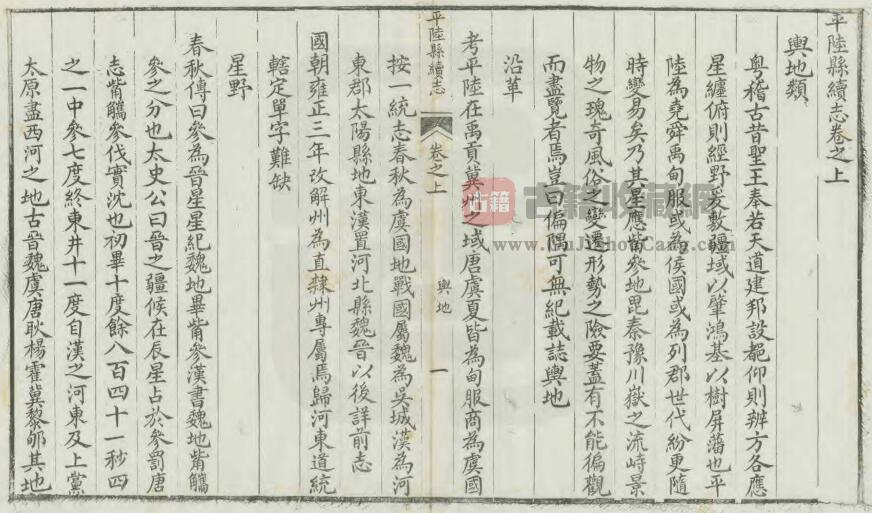 平陸縣續志卷之上
輿地類
粵稽古昔聖王奉若天道建邦設都仰則辨方各應
星纏俯則經野爰敷疆域以肇鴻基以樹屏藩也平
陸為堯舜禹甸服或為侯國或為列郡世代紛更隨
時變易矣乃其星應觜參地毘秦豫川嶽之流峙景
物之瑰奇風俗之變遷形勢之險要蓋有不能徧觀
而盡覽者焉豈曰偏隅可無紀載誌輿地
沿革
考平陸在禹貢冀州之域唐虞夏皆為甸服商為虞國
平陸縣續志
卷之上
輿地
一
按一統志春秋為虞國地戰國屬魏為吳城漢為河
東郡太陽縣地東漢置河北縣魏晉以後詳前志
國朝雍正三年改解州為直隸州專屬焉歸河東道統
轄定單字難缺
星野
春秋傳曰參為晉星星紀魏地畢觜參漢書魏地觜觿
參之分也太史公曰晉之疆候在辰星占於參罰唐
志觜觿參伐實沈也初畢十度餘八百四十一秒四
之一中參七度終東井十一度自漢之河東及上黨
太原盡西河之地古晉魏虞唐耿楊霍冀黎郇其地
古籍
古籍收藏網
www.GuJiShouCang.com